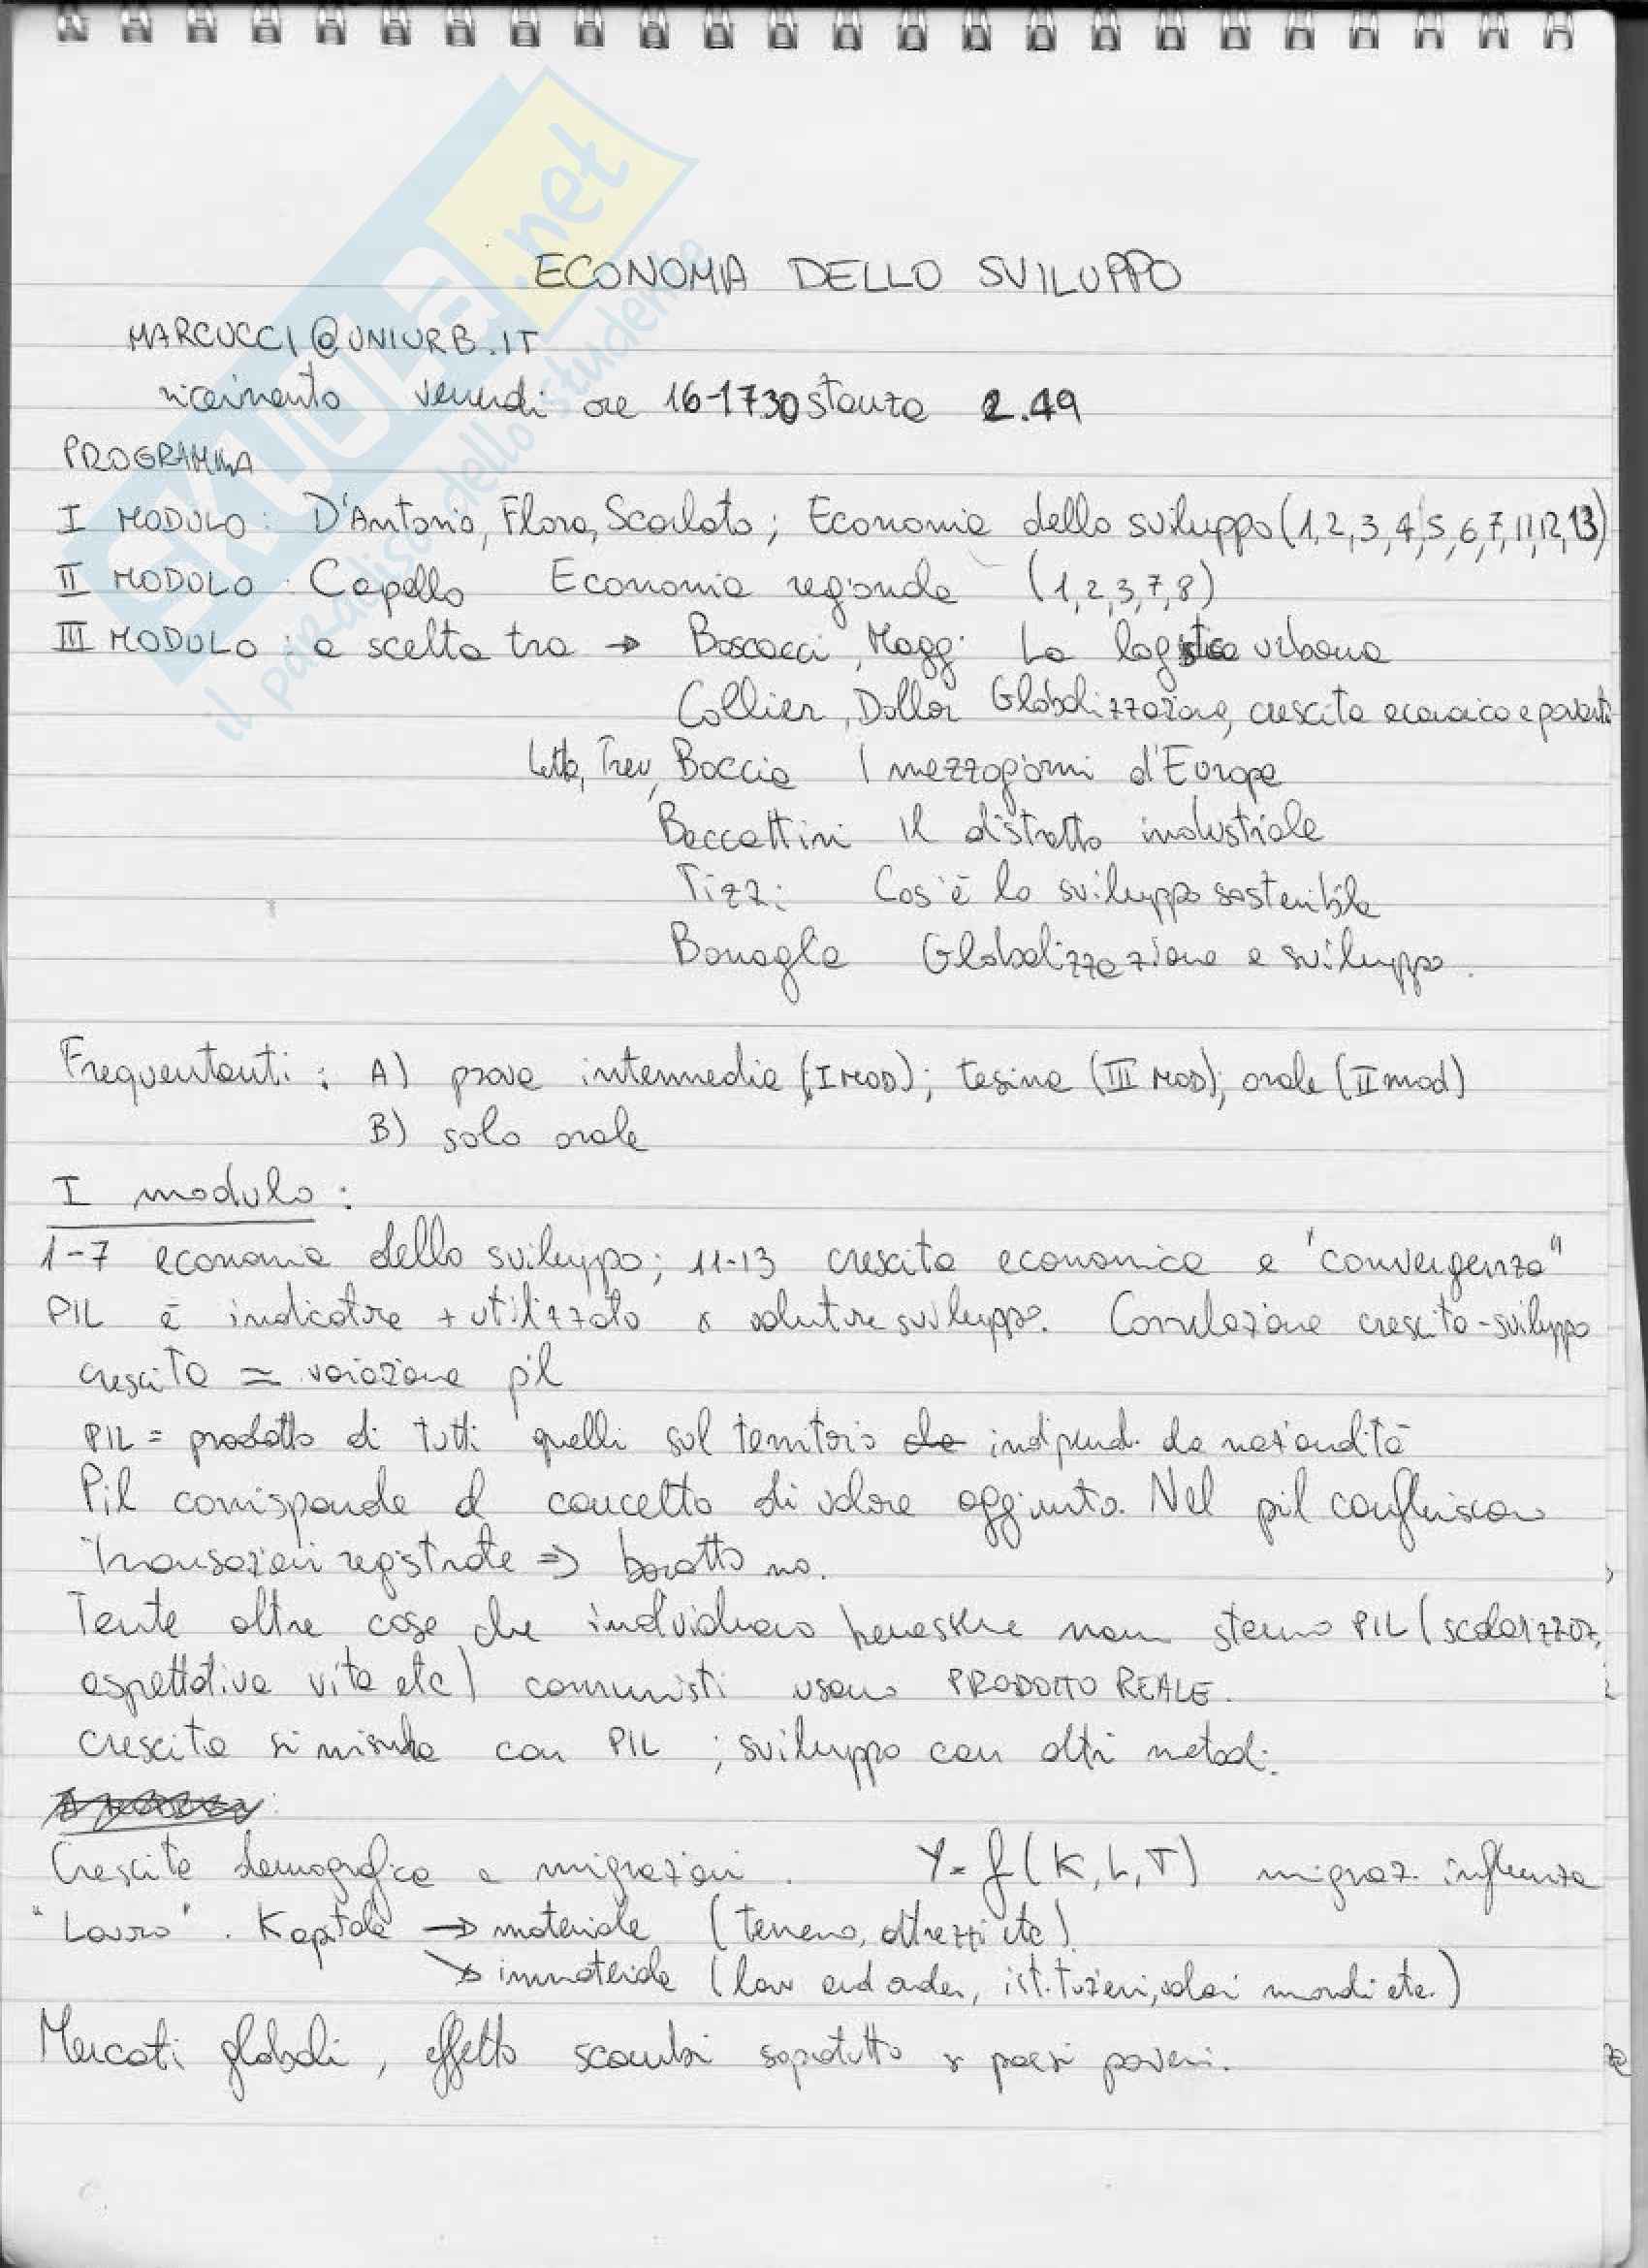 SKUOLA.net
il paradiso dello studente
ECONOMIA DELLO SVILUPPO
MARCUCCI@UNIURB.IT
ricevimento venerdì ore 16-1730 stanza 2.49
PROGRAMMA
I MODULO: D'Antonio, Flora, Scarlato; Economia dello sviluppo (1,2,3,4,5,6,7,11,12,13)
II MODULO: Capello Economia regionale (1,2,3,7,8)
III MODULO: a scelta tra → Boscacci, Maggi La logistica urbana
Collier, Dollar Globalizzazione, crescita economica e povertà
Letta, Treu, Boccia I mezzogiorni d'Europa
Beccattini Il distretto industriale
Tizzi Cos'è lo sviluppo sostenibile
Bonaglia Globalizzazione e sviluppo.
Frequentanti: A) prova intermedia (I MOD); tesina (III MOD); orale (II mod)
B) solo orale
I modulo:
1-7 economia dello sviluppo; 11-13 crescita economica e "convergenza"
PIL è indicatore + utilizzato x valutare sviluppo. Correlazione crescita-sviluppo
crescita ≃ variazione pil
PIL = prodotto di tutti quelli sul territorio da indipend. da nazionalità
Pil corrisponde al concetto di valore aggiunto. Nel pil confluiscono
transazioni registrate ⇒ baratto no.
Tante altre cose che individuano benessere non stanno PIL (scolarizzaz,
aspettativa vita etc) comunisti usano PRODOTTO REALE.
Crescita si misura con PIL; sviluppo con altri metodi.
Crescita demografica e migrazioni. Y = f(K, L, T) migraz. influenza
"Lavoro". Kapitale → materiale (terreno, attrezzi etc).
↘ immateriale (law and order, istituzioni, valori morali etc.)
Mercati globali, effetto scambi sopratutto x paesi poveri.